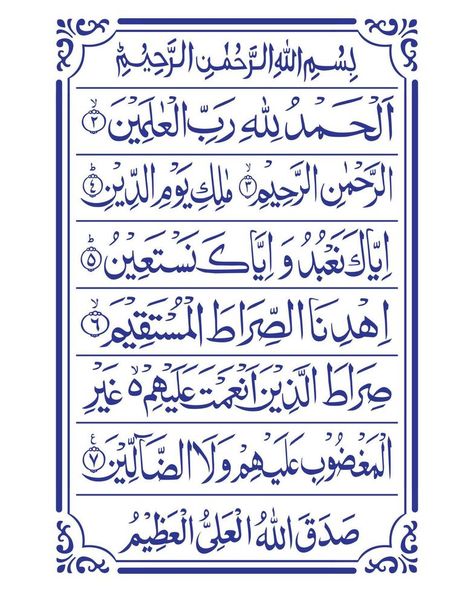 بِسْمِ اللهِ الرَّحْمٰنِ الرَّحِيْمِ
اَلْحَمْدُ لِلّٰهِ رَبِّ الْعٰلَمِيْنَ ۙ﴿۲﴾
الرَّحْمٰنِ الرَّحِيْمِ ۙ﴿۳﴾ مٰلِكِ يَوْمِ الدِّيْنِ ؕ﴿۴﴾
اِيَّاكَ نَعْبُدُ وَ اِيَّاكَ نَسْتَعِيْنُ ؕ﴿۵﴾
اِهْدِنَا الصِّرَاطَ الْمُسْتَقِيْمَ ۙ﴿۶﴾
صِرَاطَ الَّذِيْنَ اَنْعَمْتَ عَلَيْهِمْ ۵ۙ غَيْرِ
الْمَغْضُوْبِ عَلَيْهِمْ وَلَا الضَّآلِّيْنَ ۧ﴿۷﴾
صَدَقَ اللهُ الْعَلِیُّ الْعَظِيْمُ